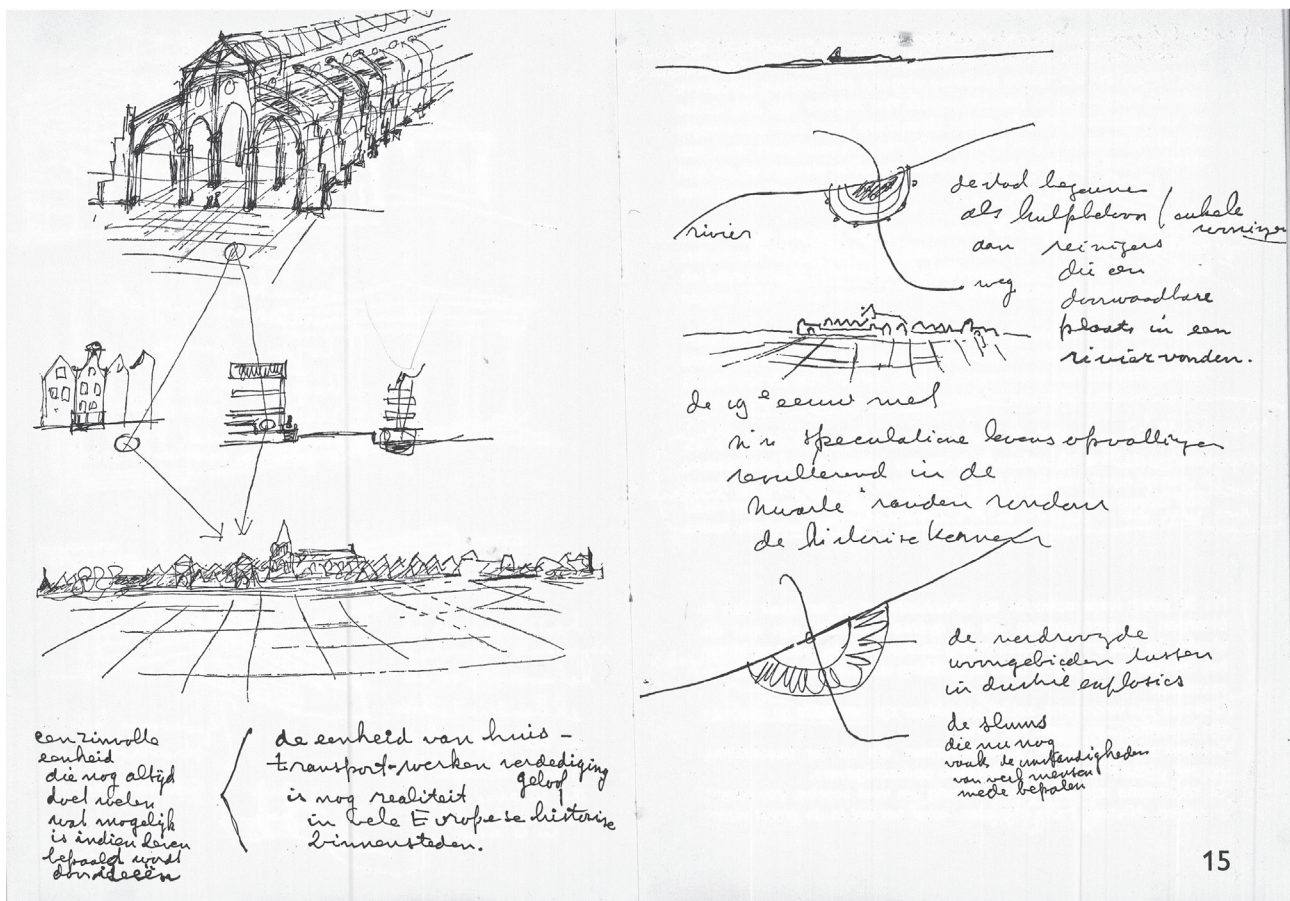 een zinvolle
eenheid
die nog altijd
doet weten
wat mogelijk
is indien leven
bepaald wordt
door ideeën
de eenheid van huis –
transport-werken verdediging
geloof
is nog realiteit
in vele Europese historise
binnensteden.
rivier
de stad begonnen
als hulpbetoon / enkele
woningen
aan reizigers
die een
weg
doorwaadbare
plaats in een
rivier vonden.
de 19e eeuw met
z'n speculatieve levensopvattingen
resulterend in de
zwarte randen rondom
de historise kernen
de verdroogde
woongebieden tussen
industrie explosies
de slums
die nu nog
vaak de omstandigheden
van veel mensen
mede bepalen
15